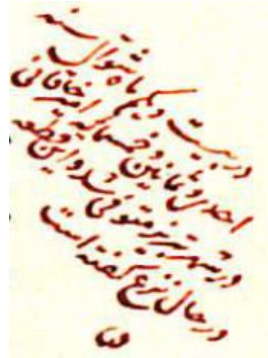 در بیست و یکم ماه شوال سنه
احدی و ثمانین و خمسمائه امیر خاقانی
در شهر تبریز متوفی شد و این قطعه
در حال نزع گفته است